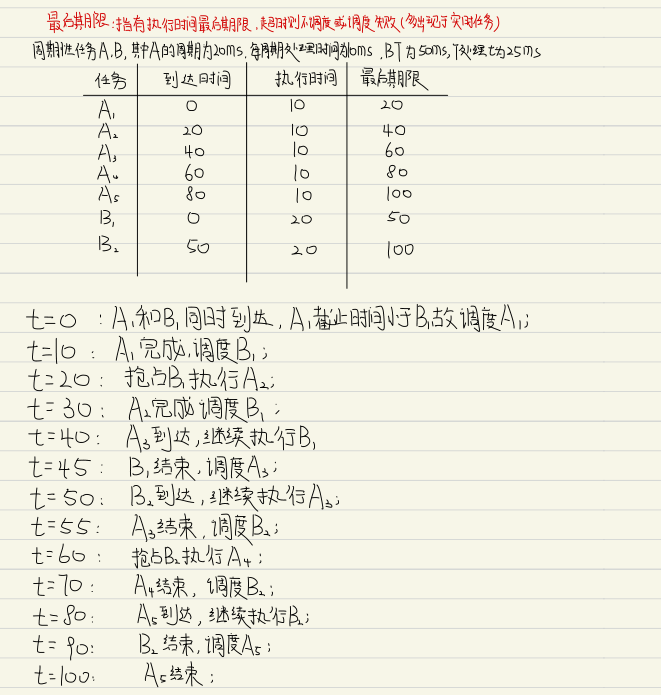 最后期限:指有执行时间最后期限,超时则不调度或调度失败(多出现于实时任务)
周期性任务A,B,其中A的周期为20ms,每周期处理时间为10ms,B T为50ms,T处理t为25ms
任务 到达时间 执行时间 最后期限
A₁ 0 10 20
A₂ 20 10 40
A₃ 40 10 60
A₄ 60 10 80
A₅ 80 10 100
B₁ 0 20 50
B₂ 50 20 100
t=0 : A₁和B₁同时到达, A₁截止时间小于B₁故调度A₁;
t=10 : A₁完成,调度B₁;
t=20 : 抢占B₁执行A₂;
t=30 : A₂完成调度B₁;
t=40: A₃到达,继续执行B₁
t=45 : B₁结束,调度A₃;
t=50: B₂到达,继续执行A₃;
t=55: A₃结束,调度B₂;
t=60: 抢占B₂执行A₄;
t=70: A₄结束,调度B₂;
t=80: A₅到达,继续执行B₂;
t=90: B₂结束,调度A₅;
t=100: A₅结束;